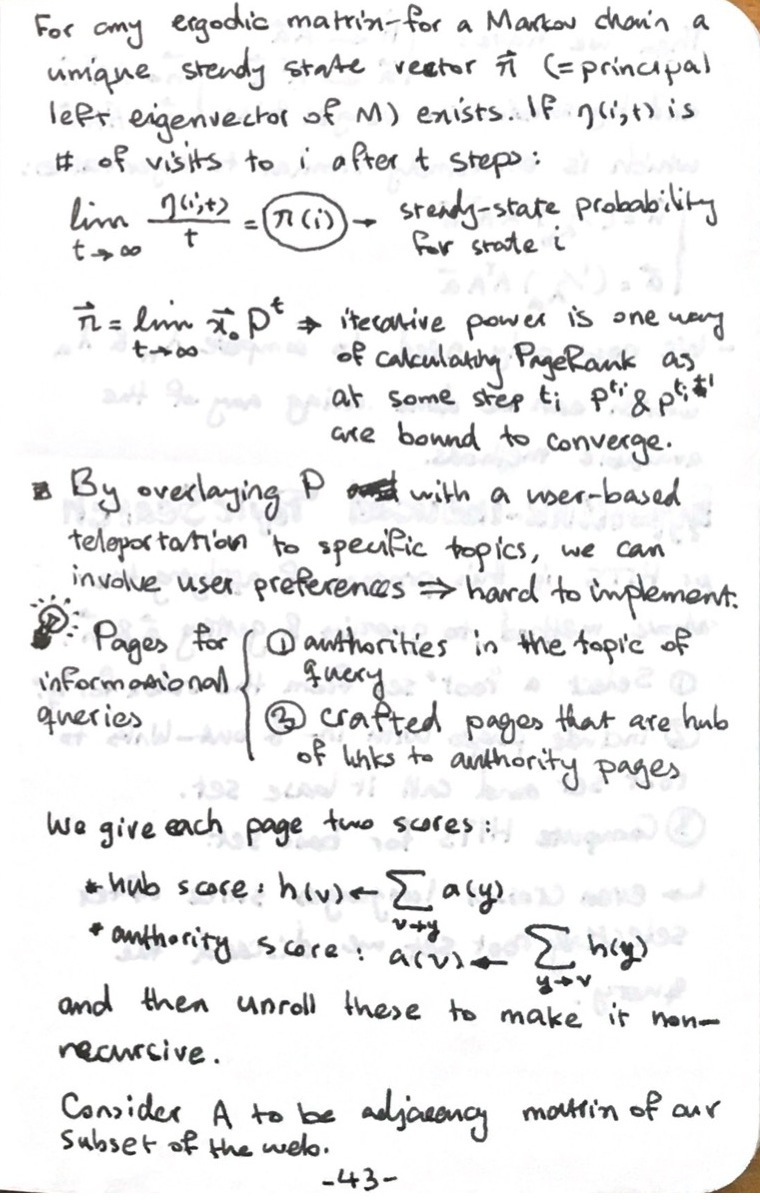 For any ergodic matrix-for a Markov chain a
unique steady state vector π⃗ (=principal
left eigenvector of M) exists. If η(i,t) is
#. of visits to i after t steps:
lim t→∞ η(i,t)/t = π(i) → steady-state probability
for state i
π⃗ = lim t→∞ x⃗₀ P^t ⇒ iterative power is one way
of calculating PageRank as
at some step ti P^ti & P^ti+1
are bound to converge.
By overlaying P with a user-based
teleportation to specific topics, we can
involve user preferences ⇒ hard to implement.
Pages for
informational
queries
① authorities in the topic of
query
② crafted pages that are hub
of links to authority pages
We give each page two scores:
* hub score: h(v) ← Σ v→y a(y)
* authority score: a(v) ← Σ y→v h(y)
and then unroll these to make it non-
recursive.
Consider A to be adjacency matrix of our
subset of the web.
-43-